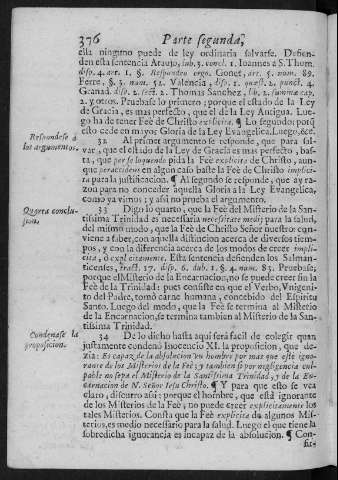 376 Parte segunda,
ella ninguno puede de ley ordinaria salvarse. Defien-
den esta sentencia Araujo, sub. 3. concl. 1. Ioannes a S. Thom.
disp. 4. art. 1. §. Respondeo ergo. Gonet, art. 5. num. 89.
Ferre, §. 3. num. 52. Valencia, disp. 1. quæst. 2. punct. 4.
Granad. disp. 2. sect. 2. Thomas Sanchez, lib. 2. summæ cap.
2. y otros. Pruebase lo primero; porque el estado de la Ley
de Gracia, es mas perfecto, que el de la Ley Antigua. Lue-
go ha de tener Feè de Christo explicita. ¶ Lo segundo; porq̃
esto cede en mayor Gloria de la Ley Evangelica. Luego, &c.
Respondese à
los argumentos.
32 Al primer argumento se responde, que para sal-
var, que el estado de la Ley de Gracia es mas perfecto, bas-
ta, que per se loquendo pida la Feè explicita de Christo, aun-
que per accidens en algun caso baste la Feè de Christo implici-
ta para la justificacion. ¶ Al segundo se responde, que ay ra-
zon para no conceder aquella Gloria a la Ley Evangelica,
como ya vimos; y assi no prueba el argumento.
Quarta conclu-
sion.
33 Digo lo quarto, que la Feè del Misterio de la San-
tissima Trinidad es necessaria necessitate medij para la salud,
del mismo modo, que la Feè de Christo Señor nuestro: con-
viene a saber, con aquella distincion acerca de diversos tiem-
pos, y con la diferencia acerca de los modos de creer impli-
cita, ò explicitamente. Esta sentencia defienden los Salman-
ticenses, tract. 17. disp. 6. dub. 1. §. 4. num. 83. Pruebase;
porque el Misterio de la Encarnacion, no se puede creer sin la
Feè de la Trinidad: pues consiste en que el Verbo, Vnigeni-
to del Padre, tomò carne humana, concebido del Espiritu
Santo. Luego del modo, que la Feè se termina al Misterio
de la Encarnacion, se termina tambien al Misterio de la San-
tissima Trinidad.
Condenase la
proposicion.
34 De lo dicho hasta aqui serà facil de colegir quan
justamente condenò Inocencio XI. la proposicion, que de-
zia: Es capaz de la absolucion un hombre por mas que estè igno-
rante de los Misterios de la Feè; y tambien si por negligencia cul-
pable no sepa el Misterio de la Santissima Trinidad, y de la En-
carnacion de N. Señor Iesu Christo. ¶ Y para que esto se vea
claro; discurro assi: porque el hombre, que està ignorante
de los Misterios de la Feè; no puede creer explicitamente los
tales Misterios. Consta que la Feè explicita de algunos Mis-
terios, es medio necessario para la salud. Luego el que tiene la
sobredicha ignorancia es incapaz de la absolucion. ¶ Con-